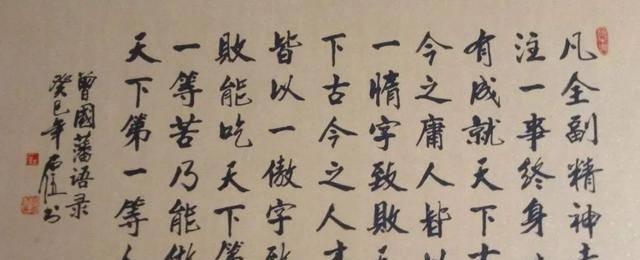 凡全副精神专
注一事终身
有成就天下古
今之庸人皆以
一惰字致敗
下古今之人才
皆以一傲字致
敗能吃天下第
一等苦乃能做
天下第一等人
曾國藩语录
癸巳年